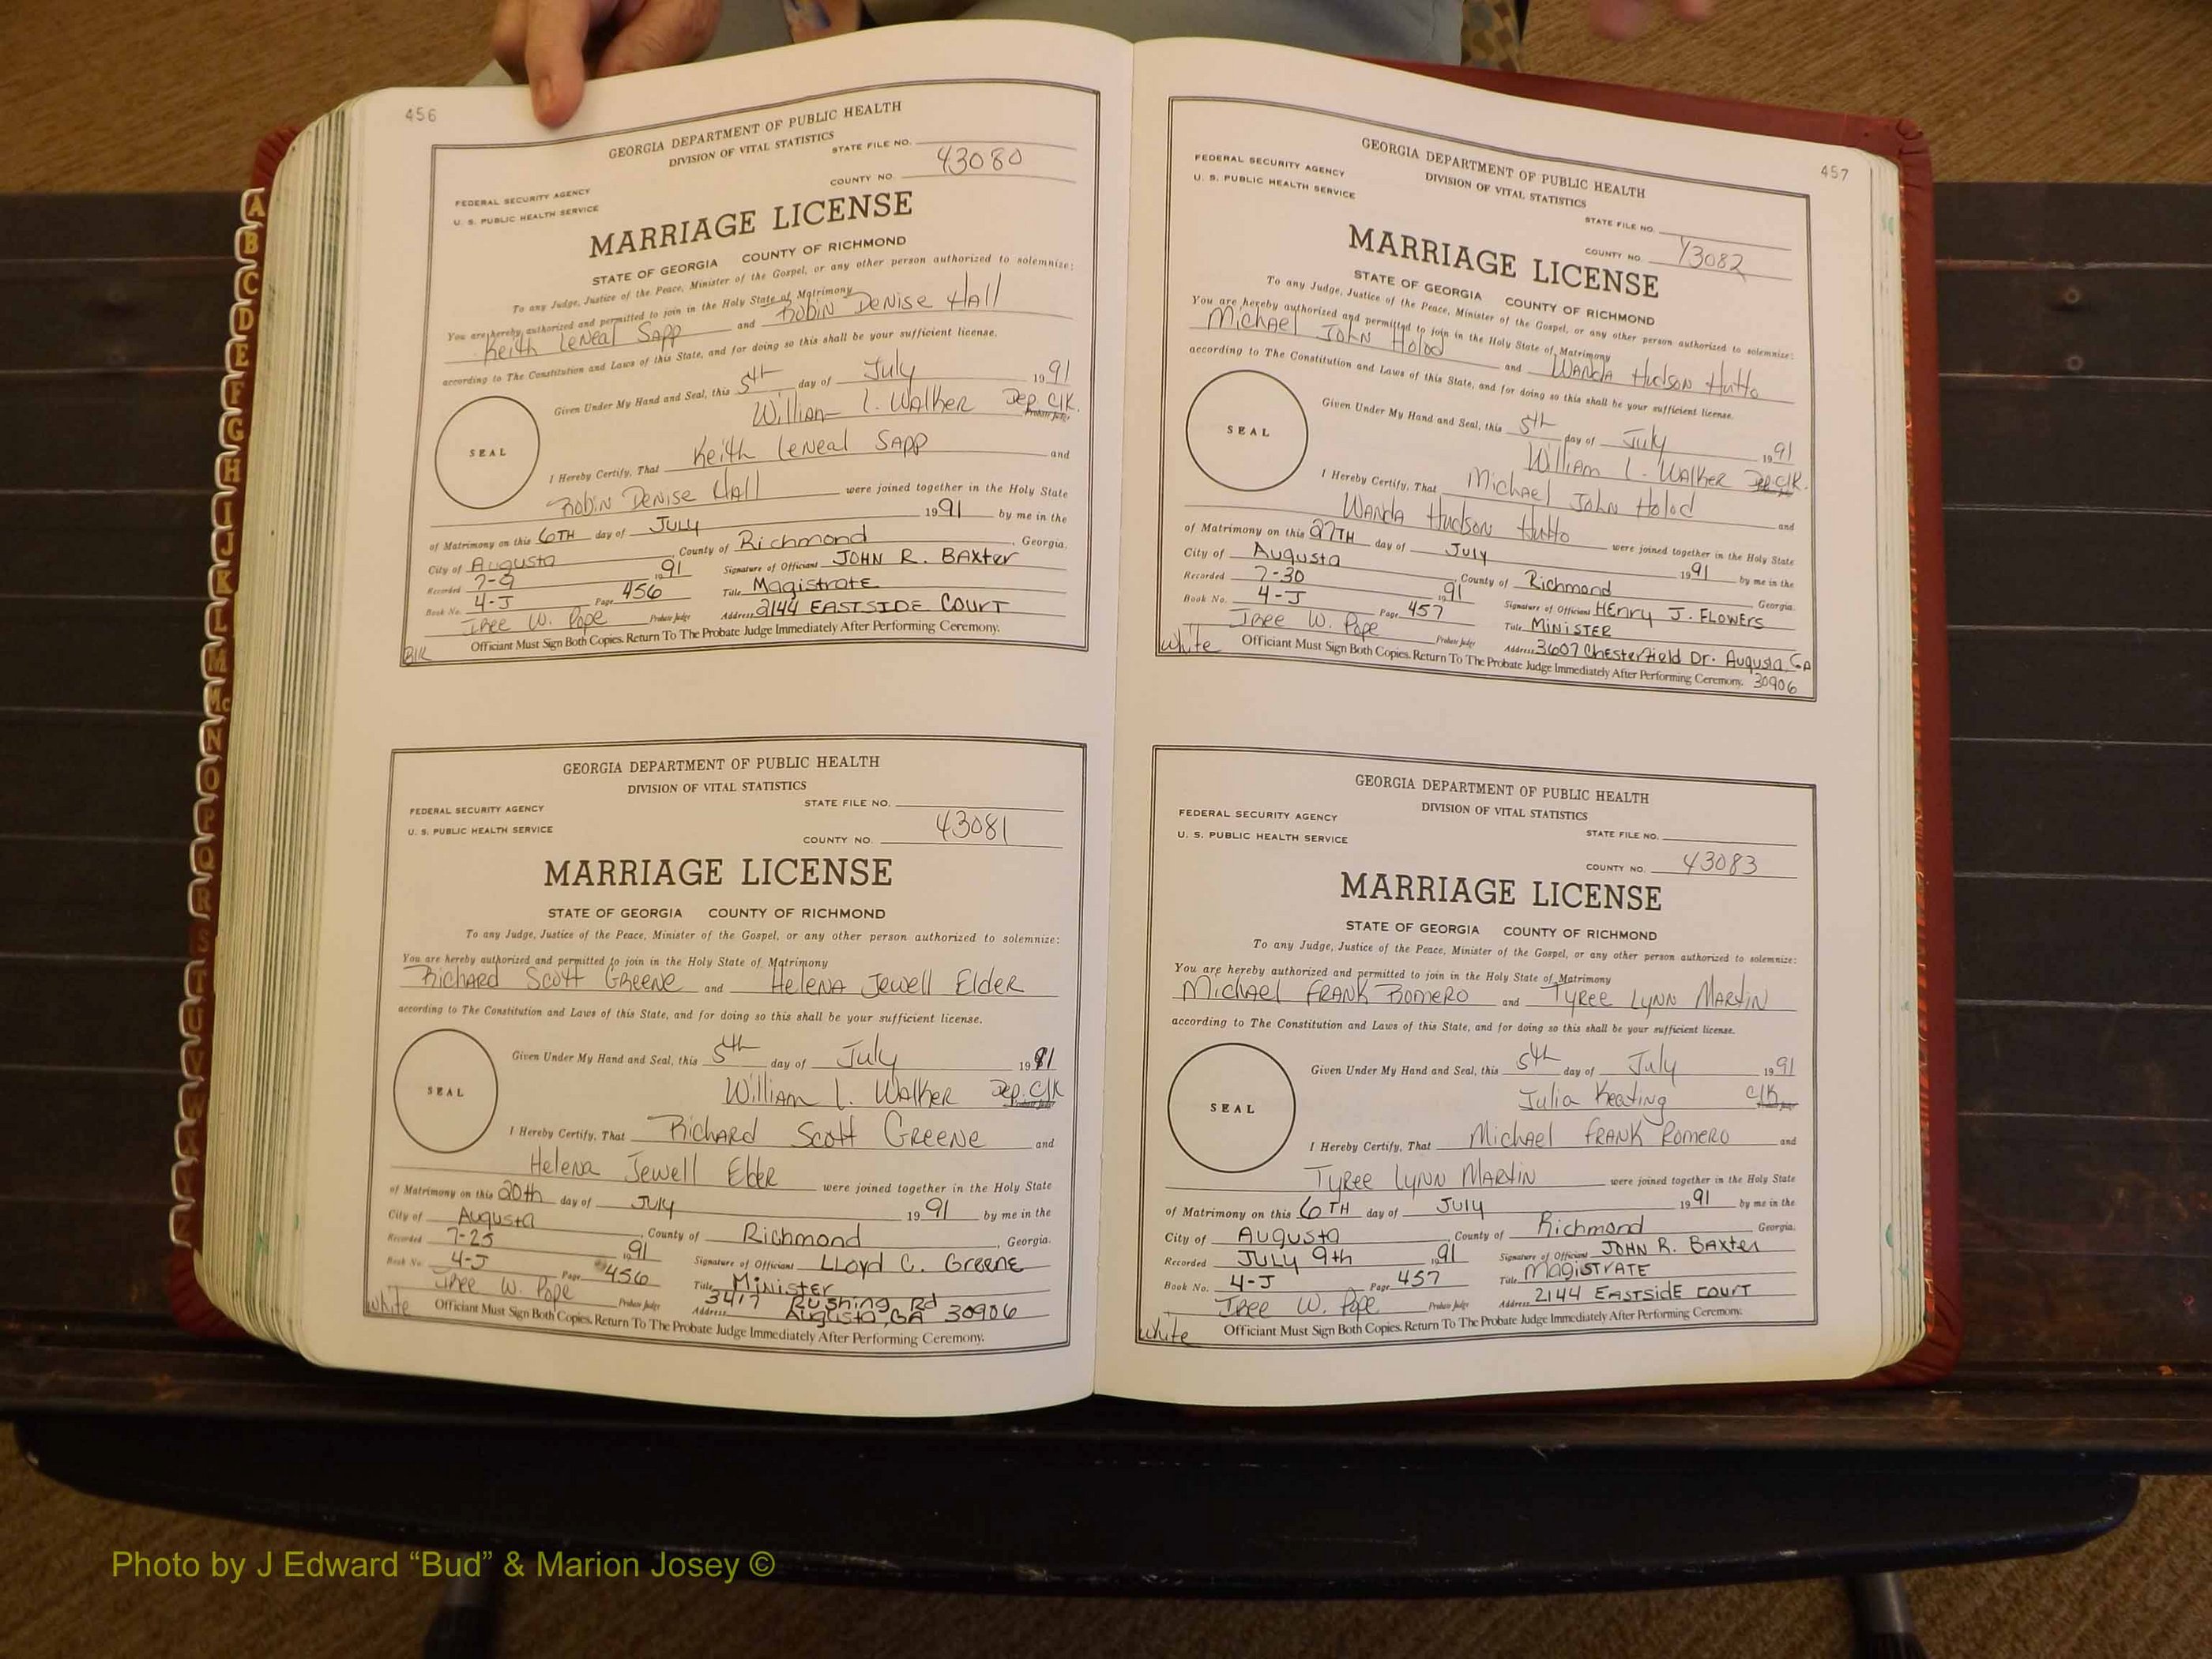 456
GEORGIA DEPARTMENT OF PUBLIC HEALTH
DIVISION OF VITAL STATISTICS
STATE FILE NO.
43080
FEDERAL SECURITY AGENCY
COUNTY NO.
U. S. PUBLIC HEALTH SERVICE
MARRIAGE LICENSE
STATE OF GEORGIA COUNTY OF RICHMOND
To any Judge, Justice of the Peace, Minister of the Gospel, or any other person authorized to solemnize:
You are hereby authorized and permitted to join in the Holy State of Matrimony
Keith LeNeal Sapp and Robin Denise Hall
according to The Constitution and Laws of this State, and for doing so this shall be your sufficient license.
Given Under My Hand and Seal, this 5th day of July 1991
William L. Walker Dep. Clk.
Probate Judge
SEAL
I Hereby Certify, That Keith LeNeal Sapp and
Robin Denise Hall were joined together in the Holy State
of Matrimony on this 6TH day of July 1991 by me in the
City of Augusta, County of Richmond, Georgia.
Recorded 7-9 1991 Signature of Officiant JOHN R. BAXter
Book No. 4-J Page 456 Title Magistrate
Iree W. Pope Probate Judge Address 2144 EASTSIDE COURT
Officiant Must Sign Both Copies. Return To The Probate Judge Immediately After Performing Ceremony.
Blk
GEORGIA DEPARTMENT OF PUBLIC HEALTH
DIVISION OF VITAL STATISTICS
FEDERAL SECURITY AGENCY
STATE FILE NO.
U. S. PUBLIC HEALTH SERVICE
COUNTY NO. 43081
MARRIAGE LICENSE
STATE OF GEORGIA COUNTY OF RICHMOND
To any Judge, Justice of the Peace, Minister of the Gospel, or any other person authorized to solemnize:
You are hereby authorized and permitted to join in the Holy State of Matrimony
Richard Scott Greene and Helena Jewell Elder
according to The Constitution and Laws of this State, and for doing so this shall be your sufficient license.
Given Under My Hand and Seal, this 5th day of July 1991
William L. Walker Dep. Clk
SEAL
I Hereby Certify, That Richard Scott Greene and
Helena Jewell Elder were joined together in the Holy State
of Matrimony on this 20th day of July 1991 by me in the
City of Augusta, County of Richmond, Georgia.
Recorded 7-25 1991 Signature of Officiant Lloyd C. Greene
Book No. 4-J Page 456 Title Minister
Iree W. Pope Probate Judge Address 3417 Rushing Rd
Augusta, GA 30906
White Officiant Must Sign Both Copies. Return To The Probate Judge Immediately After Performing Ceremony.
457
GEORGIA DEPARTMENT OF PUBLIC HEALTH
DIVISION OF VITAL STATISTICS
FEDERAL SECURITY AGENCY
U. S. PUBLIC HEALTH SERVICE
STATE FILE NO.
COUNTY NO. 43082
MARRIAGE LICENSE
STATE OF GEORGIA COUNTY OF RICHMOND
To any Judge, Justice of the Peace, Minister of the Gospel, or any other person authorized to solemnize:
You are hereby authorized and permitted to join in the Holy State of Matrimony
Michael John Holod and Wanda Hudson Hutto
according to The Constitution and Laws of this State, and for doing so this shall be your sufficient license.
Given Under My Hand and Seal, this 5th day of July 1991
William L. Walker Dep. Clk.
SEAL
I Hereby Certify, That Michael John Holod and
Wanda Hudson Hutto were joined together in the Holy State
of Matrimony on this 27TH day of July 1991 by me in the
City of Augusta, County of Richmond, Georgia.
Recorded 7-30 1991 Signature of Officiant Henry J. Flowers
Book No. 4-J Page 457 Title Minister
Iree W. Pope Probate Judge Address 3607 Chesterfield Dr. Augusta, GA
White Officiant Must Sign Both Copies. Return To The Probate Judge Immediately After Performing Ceremony. 30906
GEORGIA DEPARTMENT OF PUBLIC HEALTH
DIVISION OF VITAL STATISTICS
FEDERAL SECURITY AGENCY
U. S. PUBLIC HEALTH SERVICE
STATE FILE NO.
COUNTY NO. 43083
MARRIAGE LICENSE
STATE OF GEORGIA COUNTY OF RICHMOND
To any Judge, Justice of the Peace, Minister of the Gospel, or any other person authorized to solemnize:
You are hereby authorized and permitted to join in the Holy State of Matrimony
Michael Frank Romero and Tyree Lynn Martin
according to The Constitution and Laws of this State, and for doing so this shall be your sufficient license.
Given Under My Hand and Seal, this 5th day of July 1991
Julia Keating Clk
SEAL
I Hereby Certify, That Michael Frank Romero and
Tyree Lynn Martin were joined together in the Holy State
of Matrimony on this 6TH day of July 1991 by me in the
City of Augusta, County of Richmond, Georgia.
Recorded July 9th 1991 Signature of Officiant JOHN R. BAXter
Book No. 4-J Page 457 Title MAGISTRATE
Iree W. Pope Probate Judge Address 2144 EASTSIDE COURT
White Officiant Must Sign Both Copies. Return To The Probate Judge Immediately After Performing Ceremony.
A
B
C
D
E
F
G
H
I
J
K
L
M
Mc
N
O
P
Q
R
S
T
U
V
W
Photo by J Edward “Bud” & Marion Josey ©